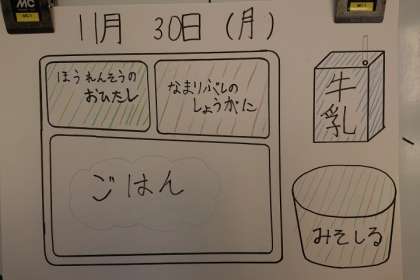 11月 30日 (月)
ほうれんそうの
おひたし
なまりぶしの
しょうがに
ごはん
牛乳
みそしる